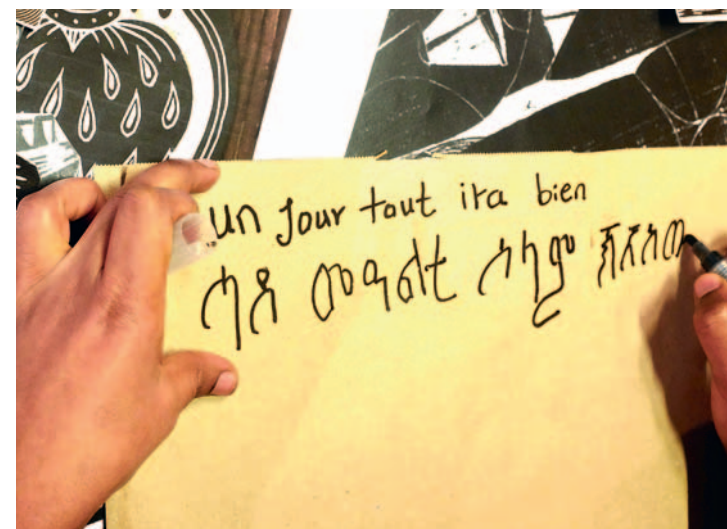 un jour tout ira bien
ሓደ መዓልቲ ሰላም